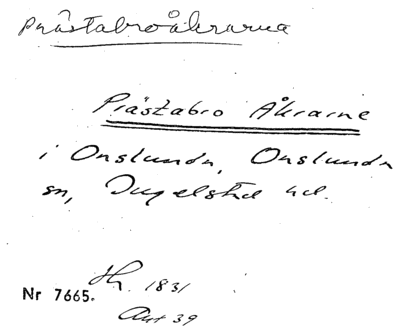 Prästabroåkrarna
Prästabro Åkrarne
i Onslunda, Onslunda
sn, Ingelstad hd.
Hh. 1831
Nr 7665.
Akt 39